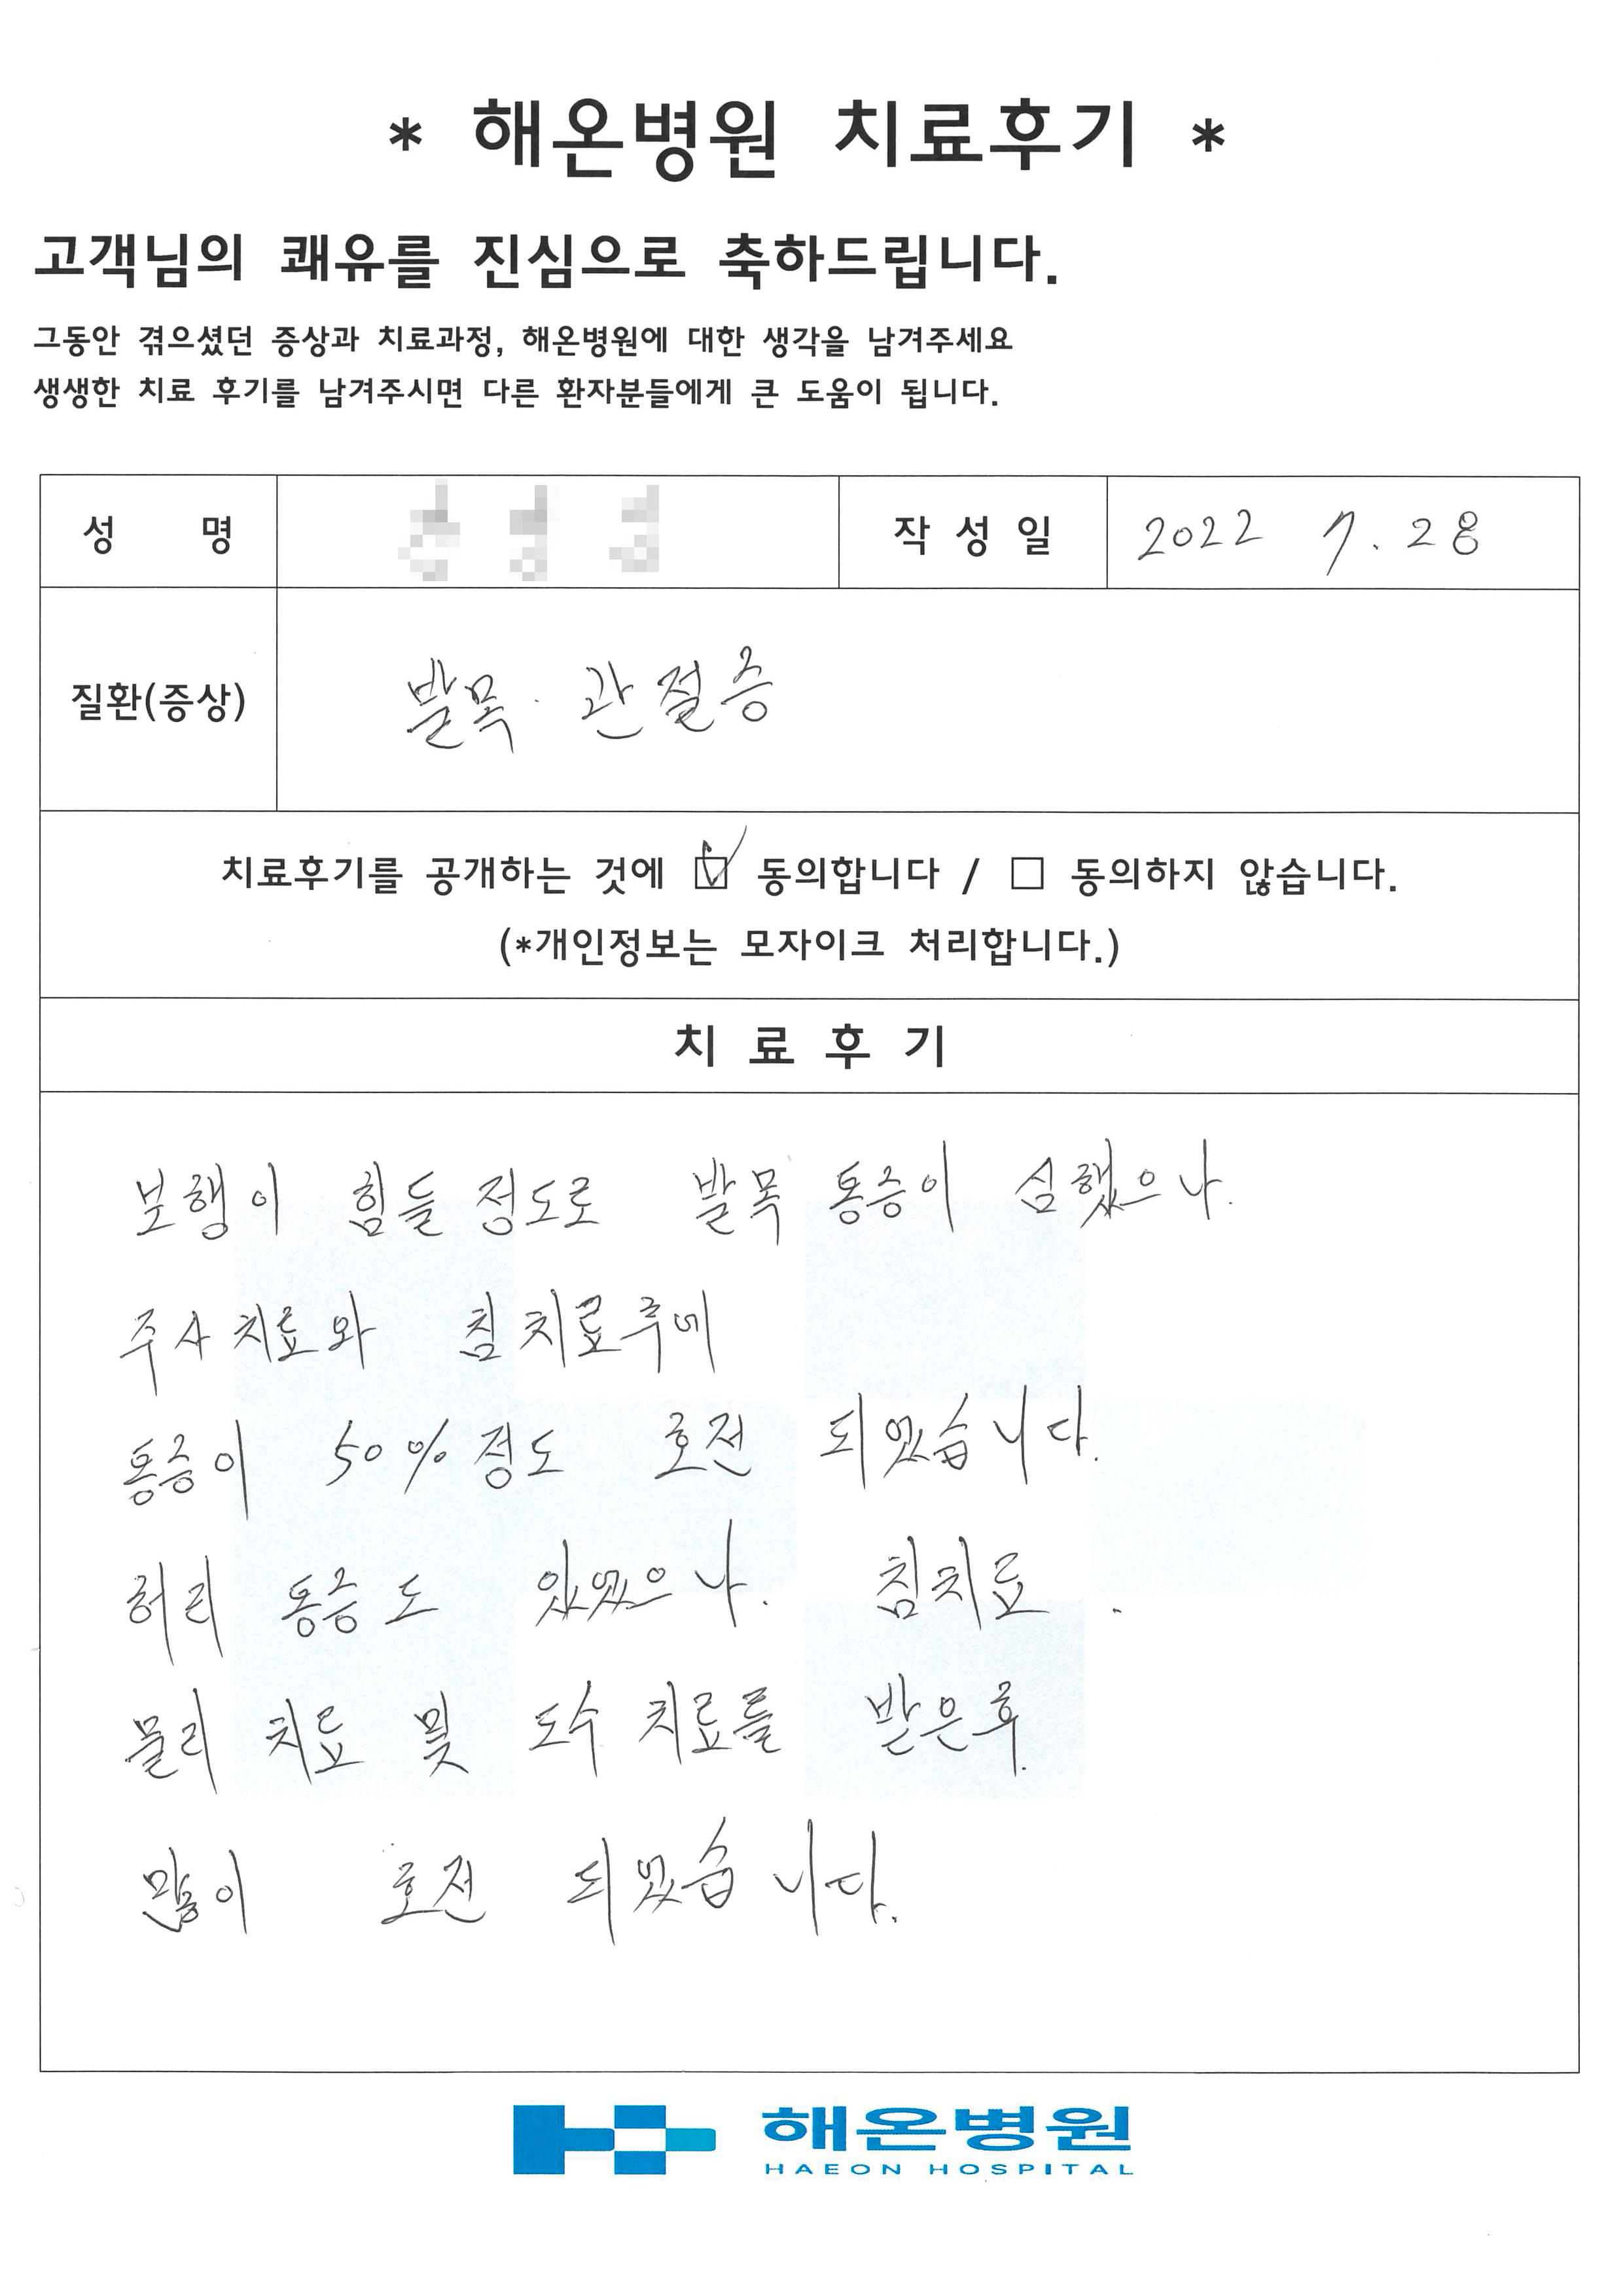 * 해온병원 치료후기 *
고객님의 쾌유를 진심으로 축하드립니다.
그동안 겪으셨던 증상과 치료과정, 해온병원에 대한 생각을 남겨주세요
생생한 치료 후기를 남겨주시면 다른 환자분들에게 큰 도움이 됩니다.
성 명 작성일 2022 7. 28
질환(증상) 발목. 관절증
치료후기를 공개하는 것에 ☑ 동의합니다 / □ 동의하지 않습니다.
(*개인정보는 모자이크 처리합니다.)
치료후기
보행이 힘들 정도로 발목 통증이 심했으나.
주사치료와 침치료후에
통증이 50% 정도 호전 되었습니다.
허리 통증도 있었으나. 침치료.
물리치료 및 도수치료를 받은후.
많이 호전 되었습니다.
해온병원
HAEON HOSPITAL